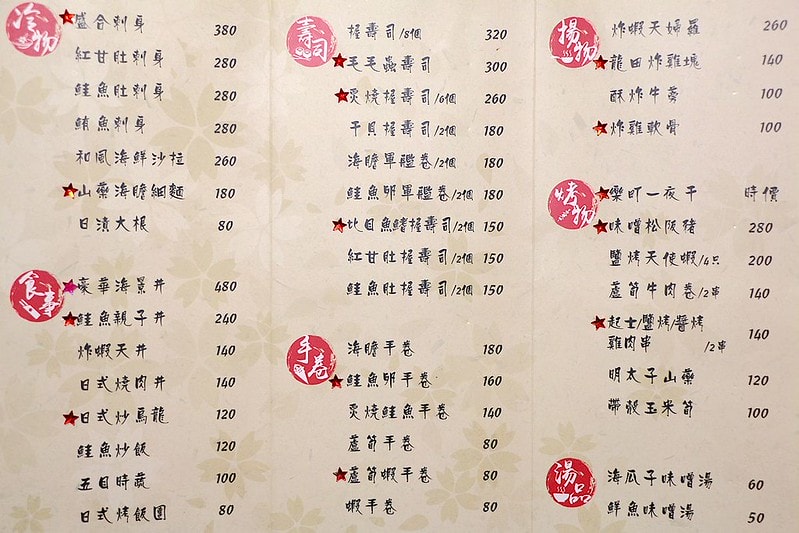 冷物
盛合刺身 380
紅甘肚刺身 280
鮭魚肚刺身 280
鮪魚刺身 280
和風海鮮沙拉 260
山藥海膽細麵 180
日漬大根 80
食事
豪華海景丼 480
鮭魚親子丼 240
炸蝦天丼 140
日式燒肉丼 140
日式炒烏龍 120
鮭魚炒飯 120
五目時蔬 100
日式烤飯圓 80
壽司
握壽司/8個 320
毛毛蟲壽司 300
炙燒握壽司/6個 260
干貝握壽司/2個 180
海膽軍艦卷/2個 180
鮭魚卵軍艦卷/2個 180
比目魚鰭握壽司/2個 150
紅甘肚握壽司/2個 150
鮭魚肚握壽司/2個 150
手卷
海膽手卷 180
鮭魚卵手卷 160
炙燒鮭魚手卷 140
蘆筍手卷 80
蘆筍蝦手卷 80
蝦手卷 80
揚物
炸蝦天婦羅 260
龍田炸雞塊 140
酥炸牛蒡 100
炸雞軟骨 100
烤物
樂町一夜干 時價
味噌松阪豬 280
鹽烤天使蝦/4只 200
蘆筍牛肉卷/2串 140
起士/鹽烤/醬烤
雞肉串 /2串 140
明太子山藥 120
帶殼玉米筍 100
湯品
海瓜子味噌湯 60
鮮魚味噌湯 50